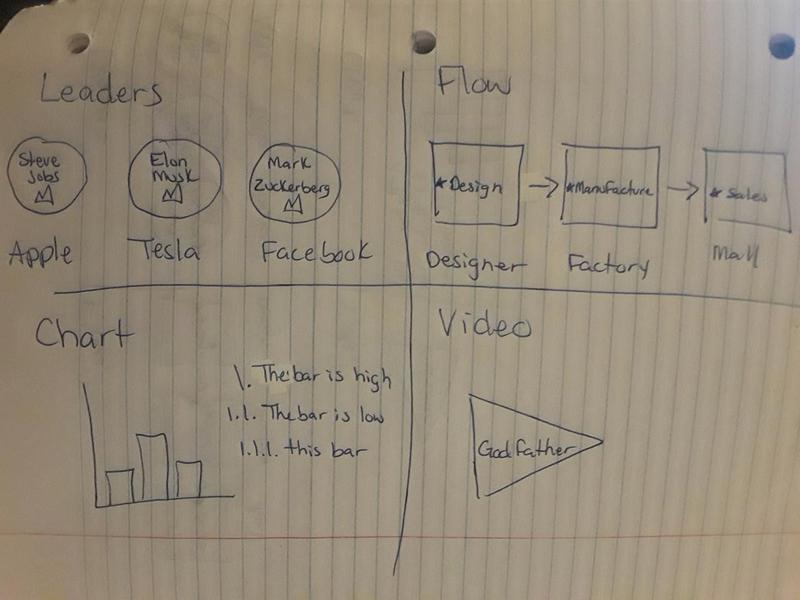 Leaders
Steve
Jobs
Elon
Musk
Mark
Zuckerberg
Apple
Tesla
Facebook
Flow
*Design
*Manufacture
*Sales
Designer
Factory
Mall
Chart
1. The bar is high
1.1. The bar is low
1.1.1. this bar
Video
Godfather